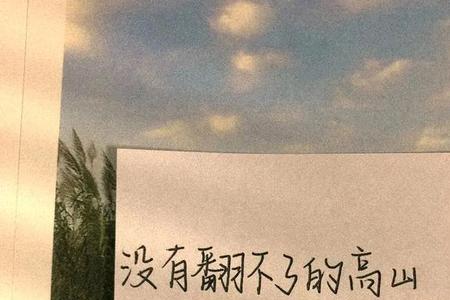 没有翻不了的高山